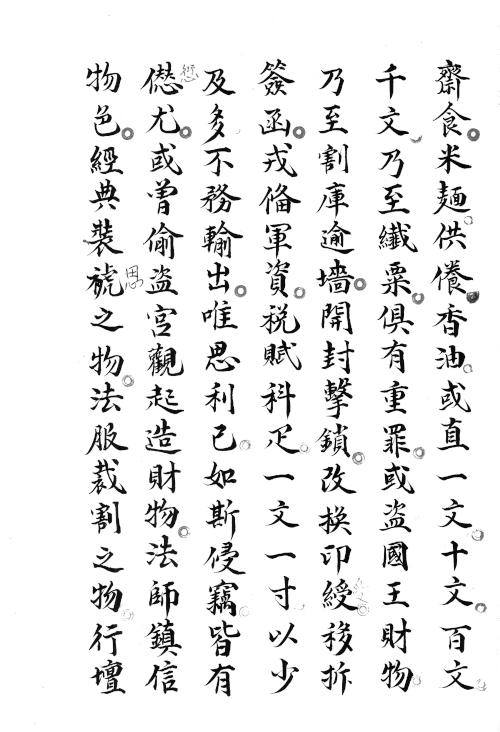 齋食米麺供養香油或直一文十文百文
千文乃至纖粟俱有重罪或盗國王財物
乃至割庫逾墻開封擊鎖改換印綬移拆
簽函戎俻軍資税賦科疋一文一寸以少
及多不務輸出唯思利己如斯侵竊皆有
僁尤或曽偷盗宮觀起造財物法師鎮信
物色經典裝褫之物法服裁割之物行壇